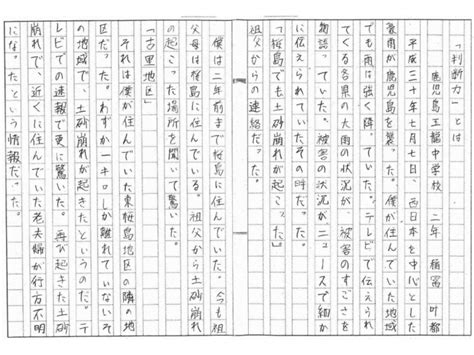 「判断力」とは
鹿児島玉龍中学校　二年　稲冨　叶都
平成三十年七月七日、西日本を中心とした
豪雨が鹿児島を襲った。僕が住んでいた地域
でも雨は強く降っていた。テレビで伝えられ
てくる各県の大雨の状況が、被害のすごさを
物語っていた。被害の状況がニュースで細か
に伝えられていたその時だった。
「桜島でも土砂崩れが起こった。」
祖父からの連絡だった。
僕は二年前まで桜島に住んでいた。今も祖
父母は桜島に住んでいる。祖父から土砂崩れ
の起こった場所を聞いて驚いた。
「古里地区」
それは僕が住んでいた東桜島地区の隣の地
区だった。わずか一キロしか離れていないそ
の地域で、土砂崩れが起きたというのだ。テ
レビでの速報で更に驚いた。再び起きた土砂
崩れで、近くに住んでいた老夫婦が行方不明
になったという情報だった。